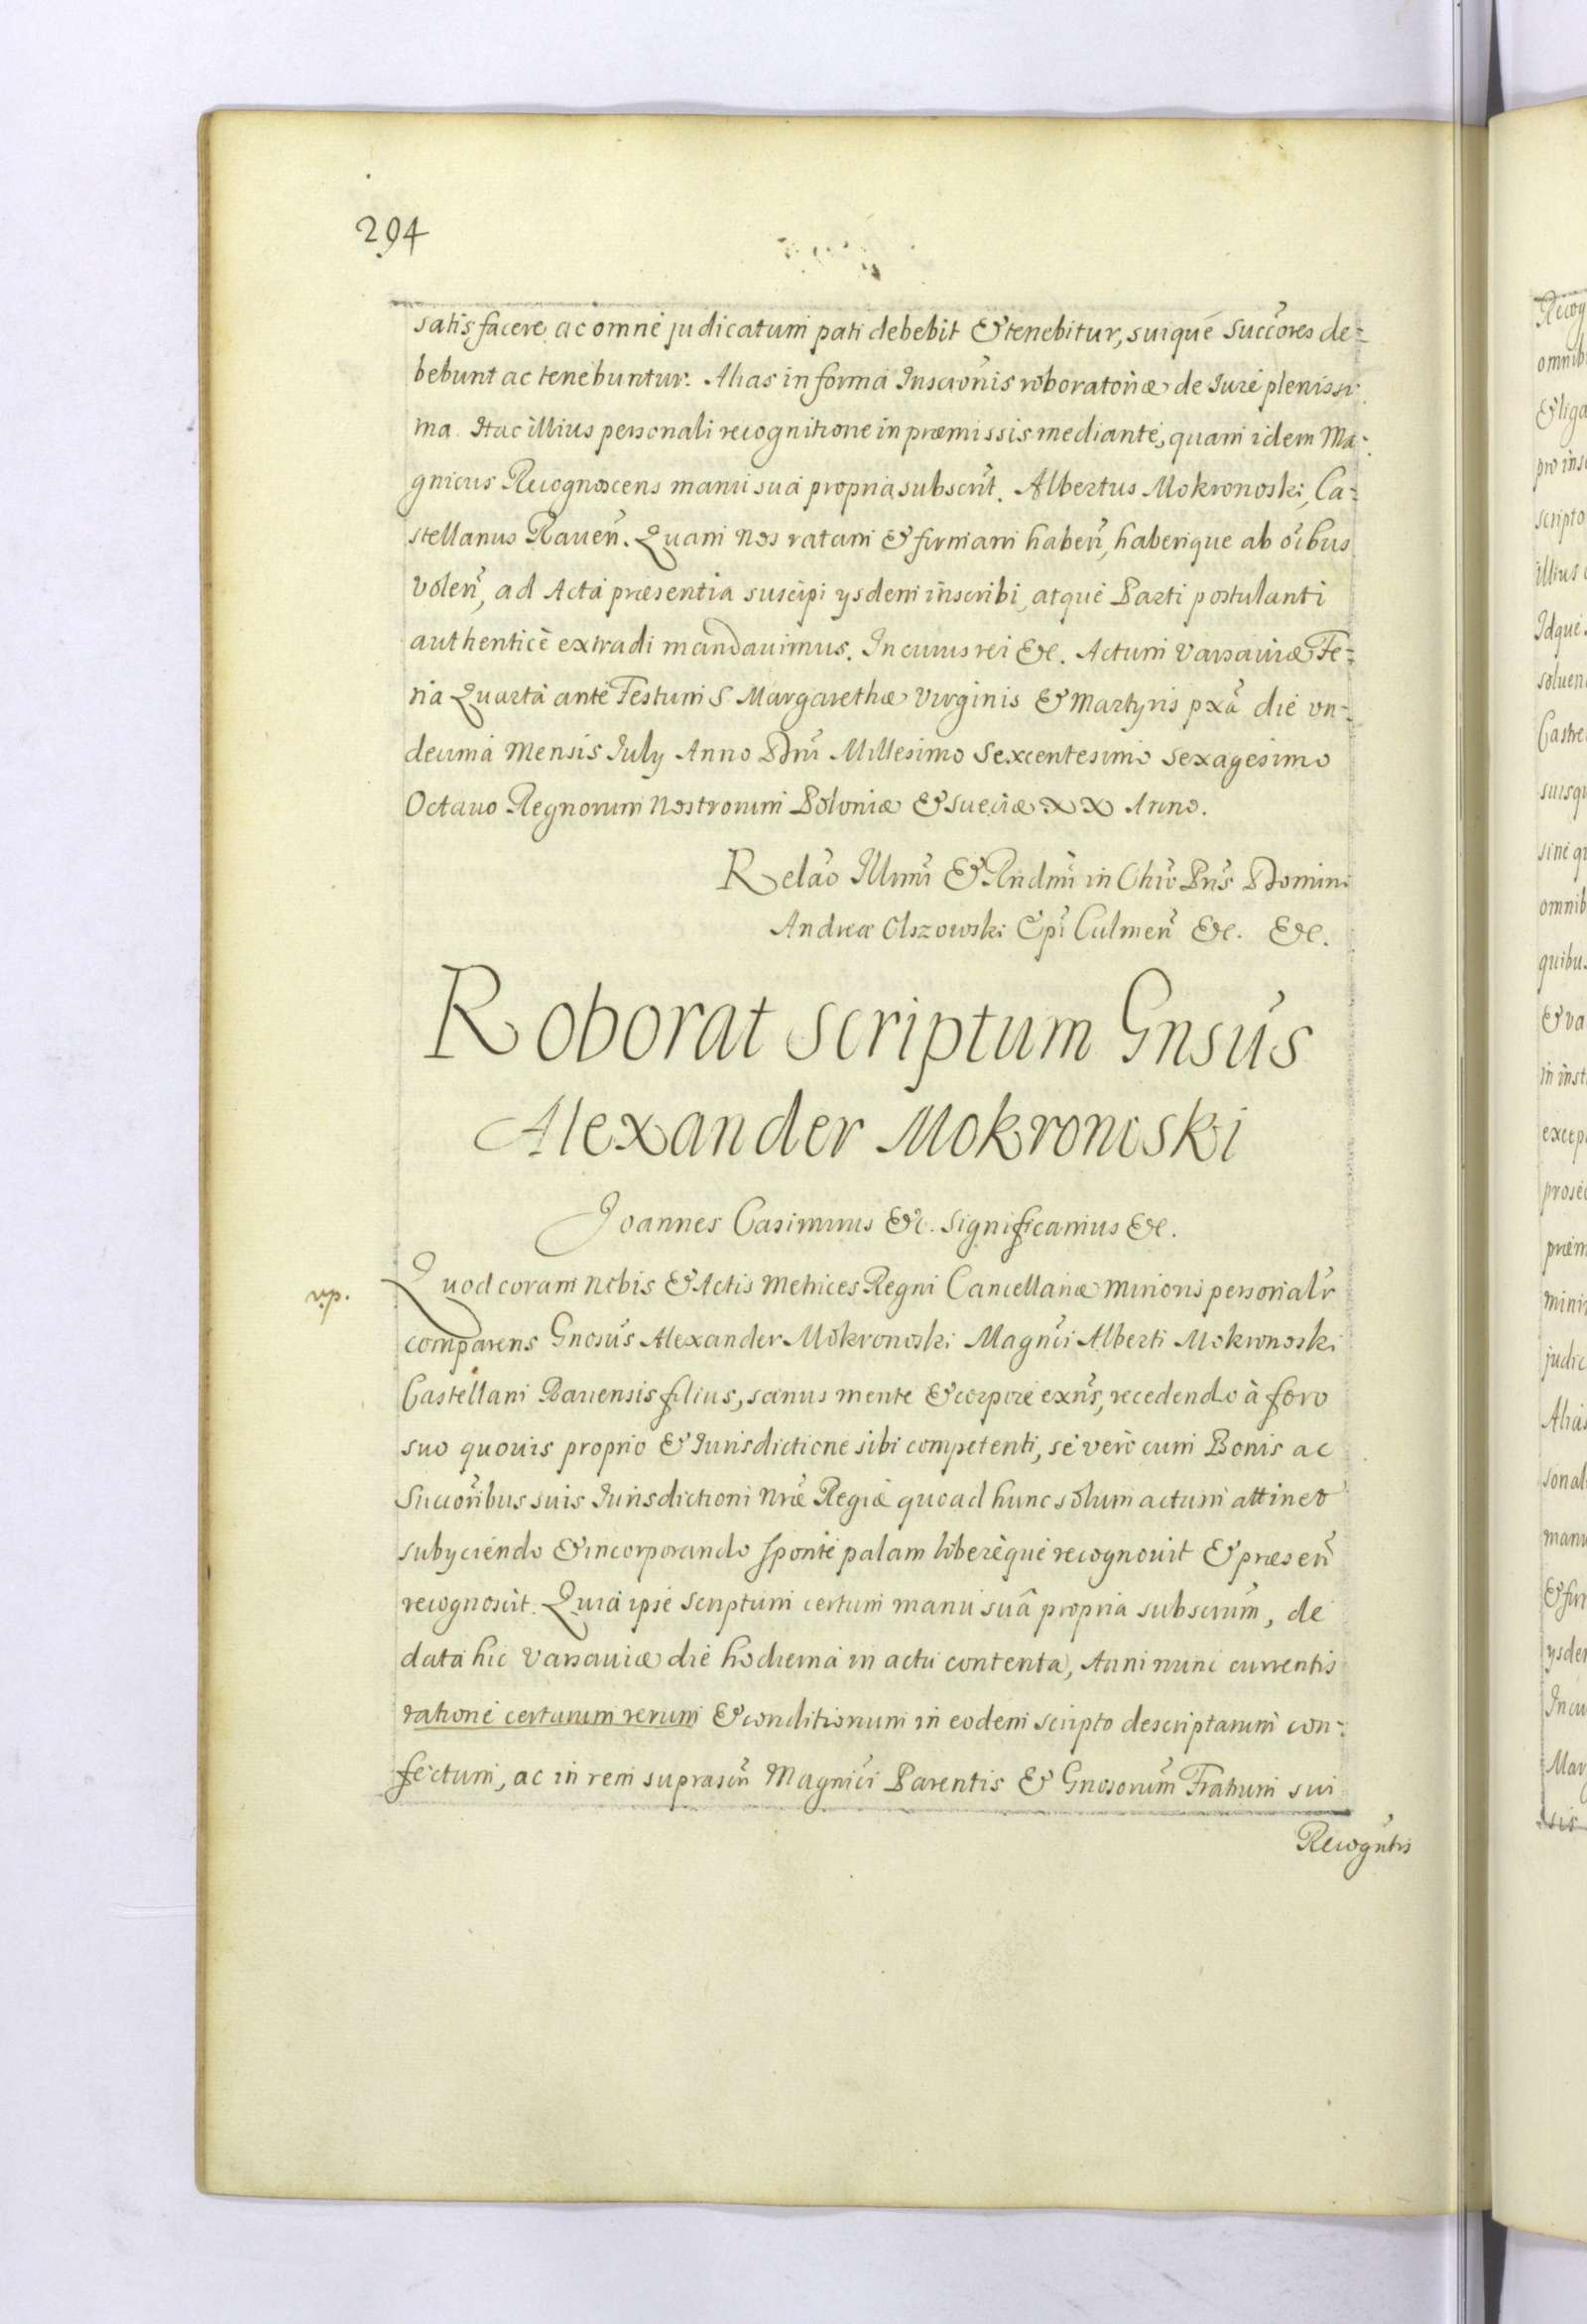 294
satisfacere, ac omne judicatum pati debebit & tenebitur, suique Succõres de=
bebunt ac tenebuntur. Alias in forma Inscriõnis roboratoriæ de Iure plenissi-
ma. Hac illius personali recognitione in præmissis mediante, quam idem Ma-
gnicus Recognoscens manu sua propria subscrit̃. Albertus Mokronoski, Ca=
stellanus Rauen̄. Quam Nos ratam & firmam haben̄, haberique ab oĩbus
volen̄, ad Acta præsentia suscipi ysdem inscribi, atque Parti postulanti
authenticè extradi mandauimus. In cuius rei &c. Actum Varsauiæ Fe=
ria Quarta ante Festum S. Margarethæ Virginis & Martyris pxã die vn-
decima Mensis July Anno Dñi Millesimo Sexcentesimo Sexagesimo
Octauo Regnorum Nostrorum Poloniæ & Sueciæ XX Anno.
Relaõ Illm̃i & Rndm̃i in Chr̃o Pris̃ Domini
Andreæ Olszowski Ep̃i Culmen̄ &c. &c.
Roborat scriptum Gnsũs
Alexander Mokronoski
Joannes Casimirus &c. Significamus &c.
vp.
Quod coram Nobis & Actis Metrices Regni Cancellariæ Minoris personalr̃
comparens Gnosũs Alexander Mokronoski Magnc̃i Alberti Mokronoski
Castellani Rauensis filius, sanus mente & corpore exñs, recedendo à foro
suo quouis proprio & Iurisdictione sibi competenti, se verò cum Bonis ac
Succorĩbus suis Iurisdictioni Nrã Regiæ quoad hunc solum actum attinet
subyciendo & incorporando sponte palam liberèque recognouit & præsen̄
recognoscit. Quia ipse Scriptum certum manu suâ propria subscrip̃m, de
data hic Varsauiæ die hodierna in actu contenta, Anni nunc currentis
ratione certarum rerum & conditionum in eodem scripto descriptarum con-
fectum, ac in rem suprascr̃ Magnic̃i Parentis & Gnosorum̃ Fratrum sui
Recogn̄tis